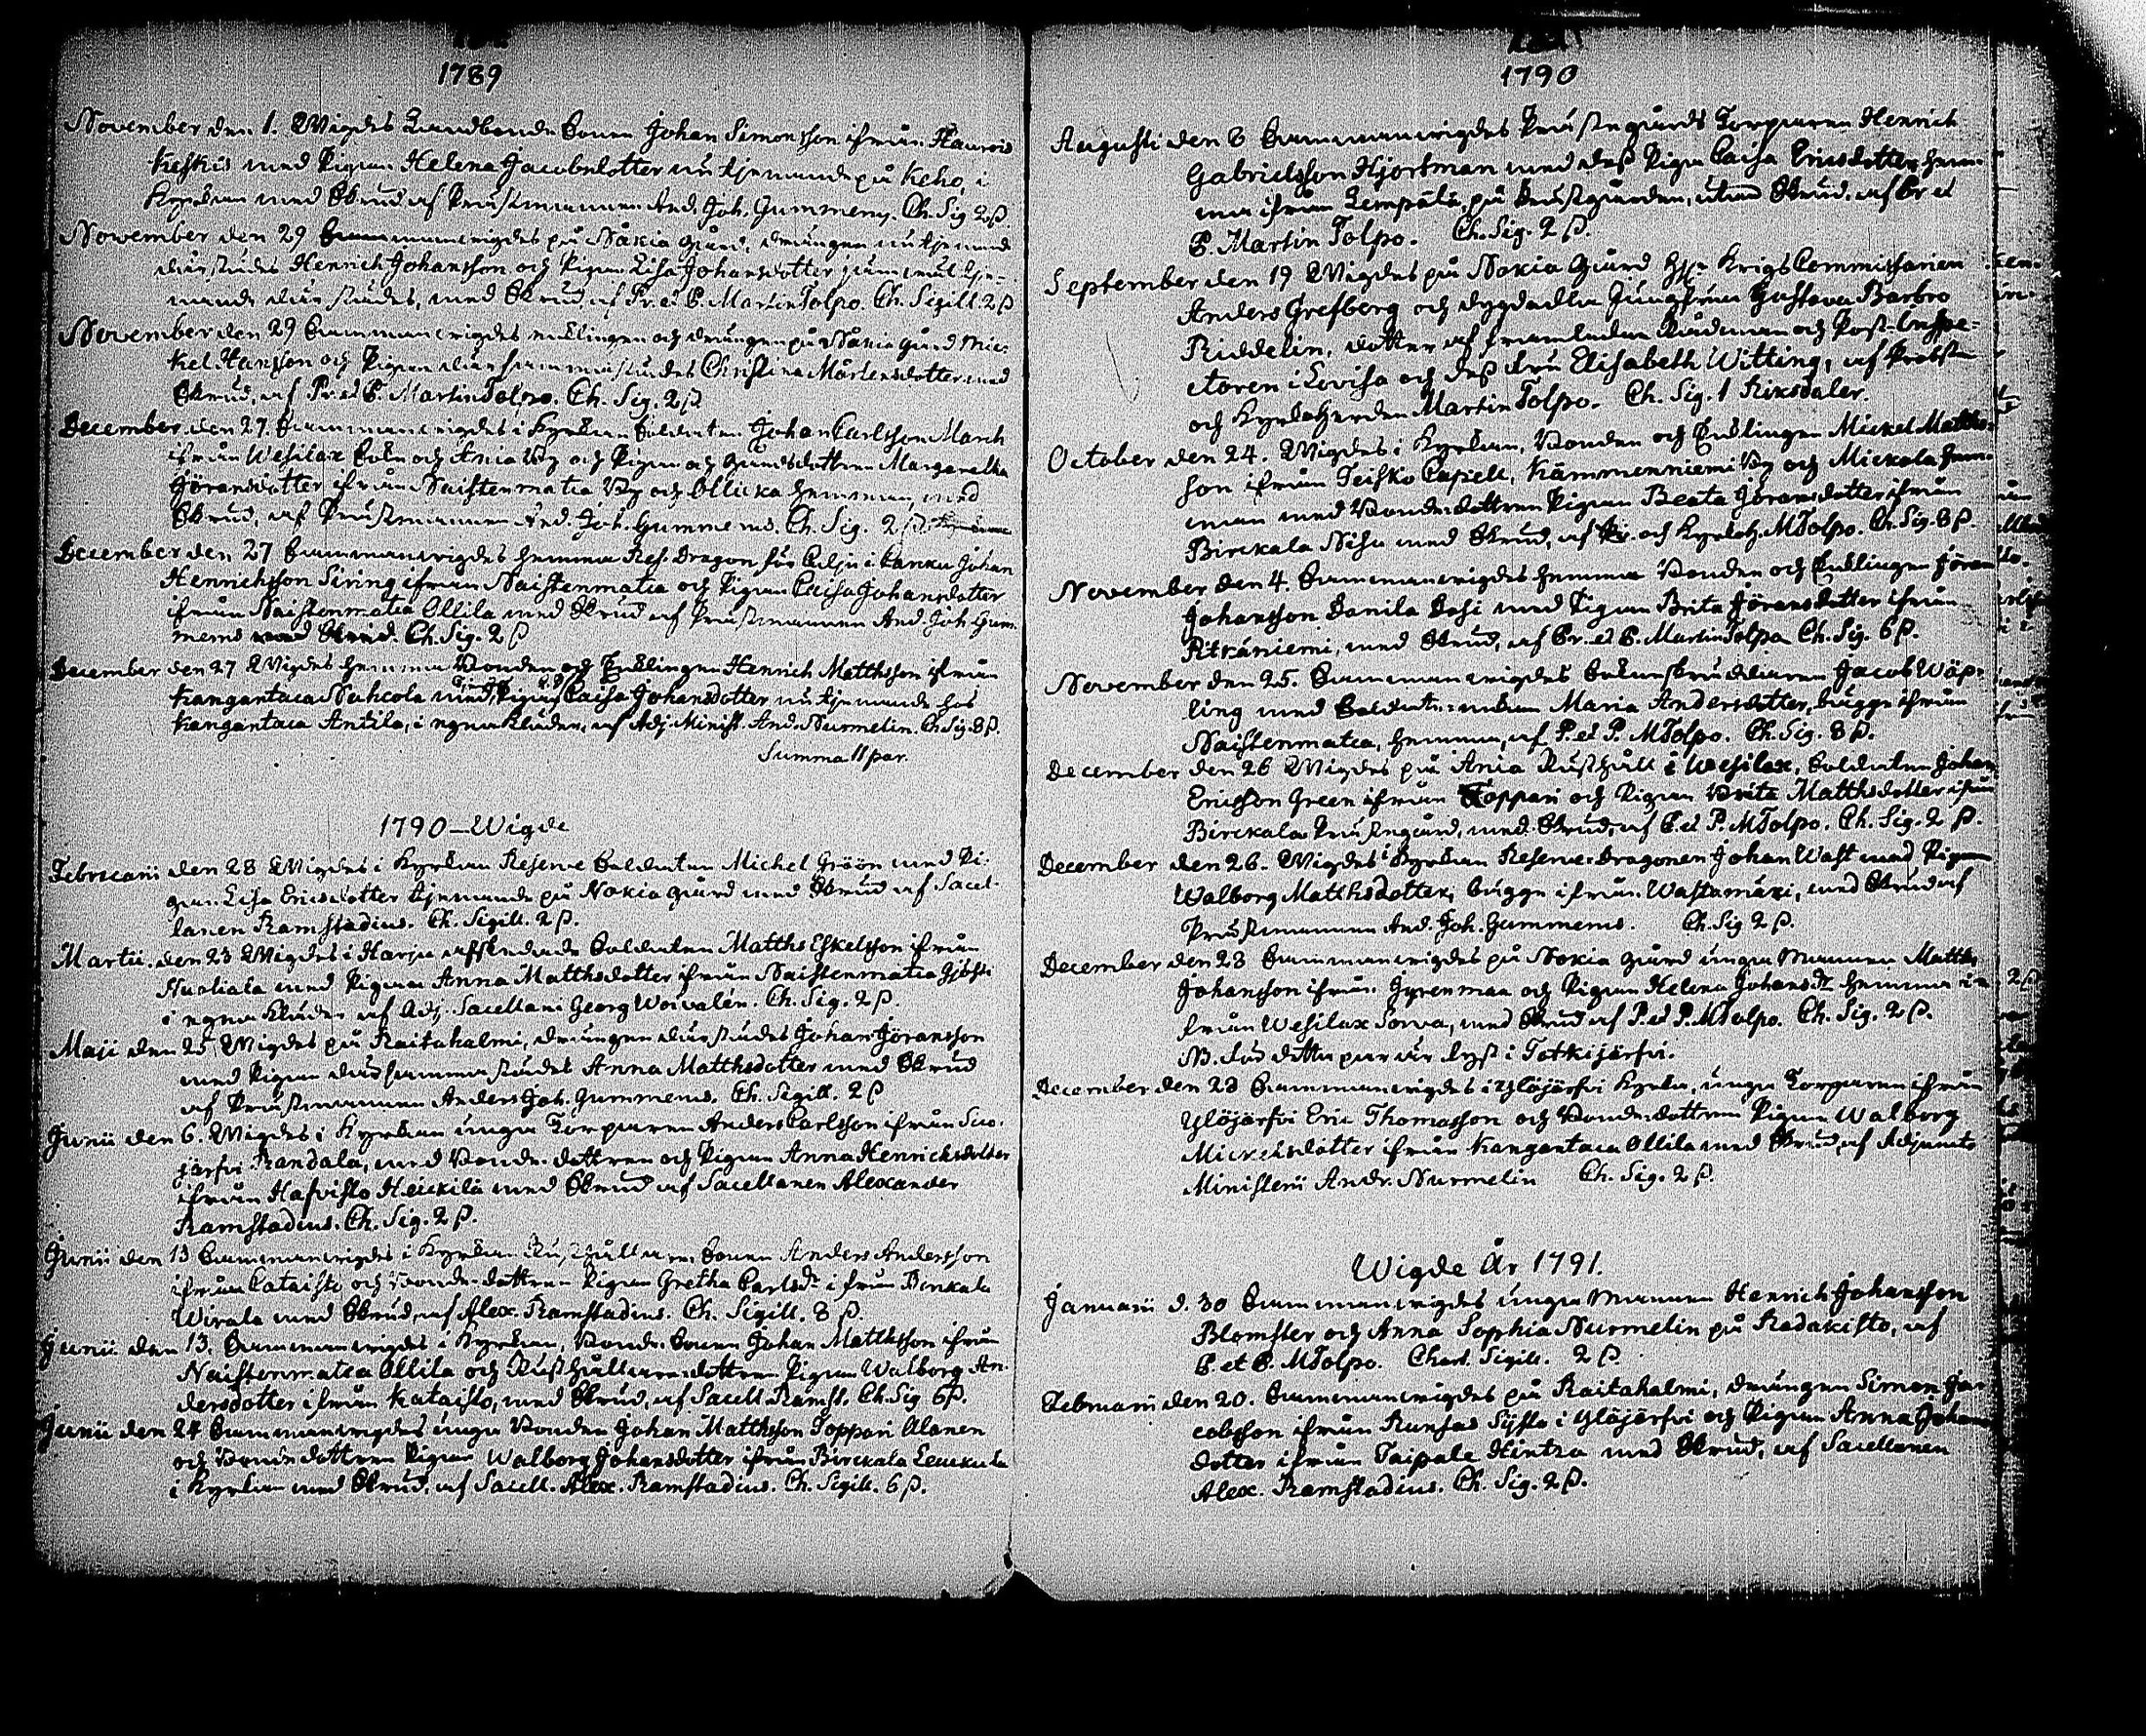 1789
November den 1. Wigdes Landbonde Sonen Johan Simonsson ifrån Haurois
Keskis med Pigan Helena Jacobsdotter nu tjenande på Keho, i
Kyrckan med Skrud af Prästmannen And. Joh. Gummerus. Ch. Sig 2 ß.
November den 29 Sammanwigdes på Nåkia gård, drängen nu tjenande
därstädes Henrich Johansson och Pigan Lisa Johansdotter jämwäl tje-
nande därstädes, med Skrud af Pr. et P. Martin Tolpo. Ch. Sigill. 2 ß
November den 29 Sammanwigdes enklingen och drängen på Nåkia gård Mic-
kel Hansson och Pigan därsammastädes Christina Mårtensdotter med
Skrud, af Pr. et P. Martin Tolpo. Ch. Sig. 2 ß
December den 27. Sammanwigdes i Kyrckan Soldaten Johan Carlsson March
ifrån Wesilax Sokn och Ania By och Pigan och Gårdsdottren Margaretha
Jöransdotter ifrån Naistenmatca By och Ollicka hemman, med
Skrud, af Prästmannen And. Joh. Gummerus. Ch. Sig. 2 ß.
December den 27 Sammanwigdes hemma Res. Dragon för Cilju i Canku Johan
Henrichsson Siring ifrån Naistenmatca och Pigan Caisa Johansdotter
ifrån Naistenmatca Ollila med Skrud af Prästmannen And. Joh. Gum-
merus med Skrud. Ch. Sig. 2 ß
December den 27 Wigdes hemma Bonden och Enklingen Henrich Matthsson ifrån
Kangantaca Nuhcola med Pigan Caisa Johansdotter nu tjenande hos
Kangantaca Anttila, i egna Kläder, af Adj. Minist. And. Nurmelin. Ch. Sig. 8 ß.
Summa 11 par.
1790 – Wigde
Februarii den 28 Wigdes i Kyrckan Reserve Soldaten Michel Gröön med Pi-
gan Lisa Ericsdotter tjenande på Nokia gård med Skrud af Sacel-
lanen Ramstadius. Ch. Sigill. 2 ß.
Martii. den 23 Wigdes i Harju afskedade Soldaten Matths Eskelsson ifrån
Nuoliala med Pigan Anna Matthsdotter ifrån Naistenmatca
i egna Kläder af Adj. Sacellani Georg Woivalén. Ch. Sig. 2 ß.
Maji den 25 Wigdes på Raitahalmi, drängen därstädes Johan Jöransson
med Pigan därsammastädes Anna Matthsdotter med Skrud
af Prästmannen Anders Joh. Gummerus. Ch. Sigill. 2 ß
Junii den 6. Wigdes i Kyrckan unga Torparen Anders Carlsson ifrån Suo-
järfvi Randala, med Bonde-dottren och Pigan Anna Henrichsdotter
ifrån Hafvisto Heickilä med Skrud af Sacellanen Alexander
Ramstadius. Ch. Sig. 2 ß.
Junii den 13 Sammanwigdes i Kyrckan Rusthållare Sonen Anders Andersson
ifrån Cataisto och Bonde-dottren Pigan Gretha Carlsdr. ifrån Birckala
Wirala med Skrud, af Alex. Ramstadius. Ch. Sigill. 8 ß.
Junii den 13. Sammanwigdes i Kyrckan, Bonde-Sonen Johan Matthsson ifrån
Naistenmatca Ollila och Rusthållare-dottren Pigan Walborg An-
dersdotter ifrån Kataisto, med Skrud, af Sacell. Ramst. Ch. Sig 6 ß.
Junii den 24 Sammanwigdes unga Bonden Johan Matthsson Toppari Alanen
och Bonde-dottren Pigan Walborg Johansdotter ifrån Birckala Leuckula
i Kyrckan med Skrud, af Sacell. Alex. Ramstadius. Ch. Sigill. 6 ß.
1790
Augusti den 8 Sammanwigdes Prästegårds Torparen Henrich
Gabrielsson Hjortman med dess Piga Caisa Ericsdotter hem-
ma ifrån Lempälä, på Prästgården, utan Skrud, af Pr. et
P. Martin Tolpo. Ch. Sig. 2 ß.
September den 19 Wigdes på Nokia Gård Hr Krigs Commissarien
Anders Grefberg och dygdädla Jungfrun Gustava Barbro
Riddelin, dotter af framledne Rådman och Post-Inspe-
ctoren i Lovisa och dess fru Elisabeth Witting, af Probsten
och Kyrckoherden Martin Tolpo. Ch. Sig. 1 Riksdaler.
October den 24. Wigdes i Kyrckan, Bonden och Enklingen Mickel Matths-
son ifrån Teisko Capell, Kämmenniemi By och Mickola hem-
man med Bonde-dottren Pigan Beata Jöransdotter ifrån
Birckala Nihu med Skrud, af Pr. och Kyrckoh. M Tolpo. Ch. Sig. 8 ß.
November den 4. Sammanwigdes hemma Bonden och Enklingen Jöran
Johansson Danila Dasi med Pigan Brita Jöransdotter ifrån
Pitkäniemi, med Skrud, af Pr. et P. Martin Tolpo Ch. Sig. 6 ß.
November den 25. Sammanwigdes Sokneskräddaren Jacob Wäp-
ling med Soldate-enkan Maria Andersdotter, bägge ifrån
Naistenmatca, hemma, af P. et P. M Tolpo. Ch. Sig. 8 ß.
December den 26 Wigdes på Ania Rusthåll i Wesilax, Soldaten Johan
Ericsson Green ifrån Toppari och Pigan Brita Matthsdotter ifrån
Birckala Prästegård, med Skrud, af P. et P. M Tolpo. Ch. Sig. 2 ß.
December den 26. Wigdes i Kyrckan Reserve-Dragonen Johan Wast med Pigan
Walborg Matthsdotter, bägge ifrån Wastamäxi, med Skrud af
Prästmannen And. Joh. Gummerus. Ch. Sig 2 ß.
December den 28 Sammanwigdes på Nokia gård unga Mannen Matths
Johansson ifrån Hyrenmaa och Pigan Helena Johansdr. hemma i-
från Wesilax Sorva, med Skrud af P. et P. M Tolpo. Ch. Sig. 2 ß.
NB. för detta par är lyst i Tottkijärfvi.
December den 28 Sammanwigdes i Ylöjärfvi Kyrka, unga Torparen ifrån
Ylöjärfvi Eric Thomasson och Bonde-dottren Pigan Walborg
Mickelsdotter ifrån Kangantaca Ollila med Skrud, af Adjuncto
Ministerii Andr. Nurmelin Ch. Sig. 2 ß.
Wigde År 1791.
Januarii d. 30 Sammanwigdes unga Mannen Henrich Johansson
Blomster och Anna Sophia Nurmelin på Radakisto, af
P. et P. M Tolpo. Chart. Sigill. 2 ß.
Februarii den 20. Sammanwigdes på Raitahalmi, drängen Simon Ja-
cobsson ifrån Runsas Sysla i Ylöjärfvi och Pigan Anna Johans
dotter ifrån Taipale Hintza med Skrud, af Sacellanen
Alex. Ramstadius. Ch. Sig. 2 ß.